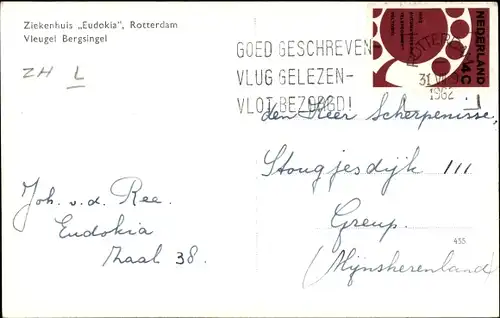 Ziekenhuis „Eudokia", Rotterdam
Vleugel Bergsingel
ZH L
GOED GESCHREVEN
VLUG GELEZEN-
VLOT BEZORGD!
ROTTERDAM
31
1962
NEDERLAND
4C
den Heer Scherpenisse,
Stougjesdijk 111
Greup.
(Mijnsherenland)
Joh. v.d. Ree.
Eudokia
Zaal 38.
455